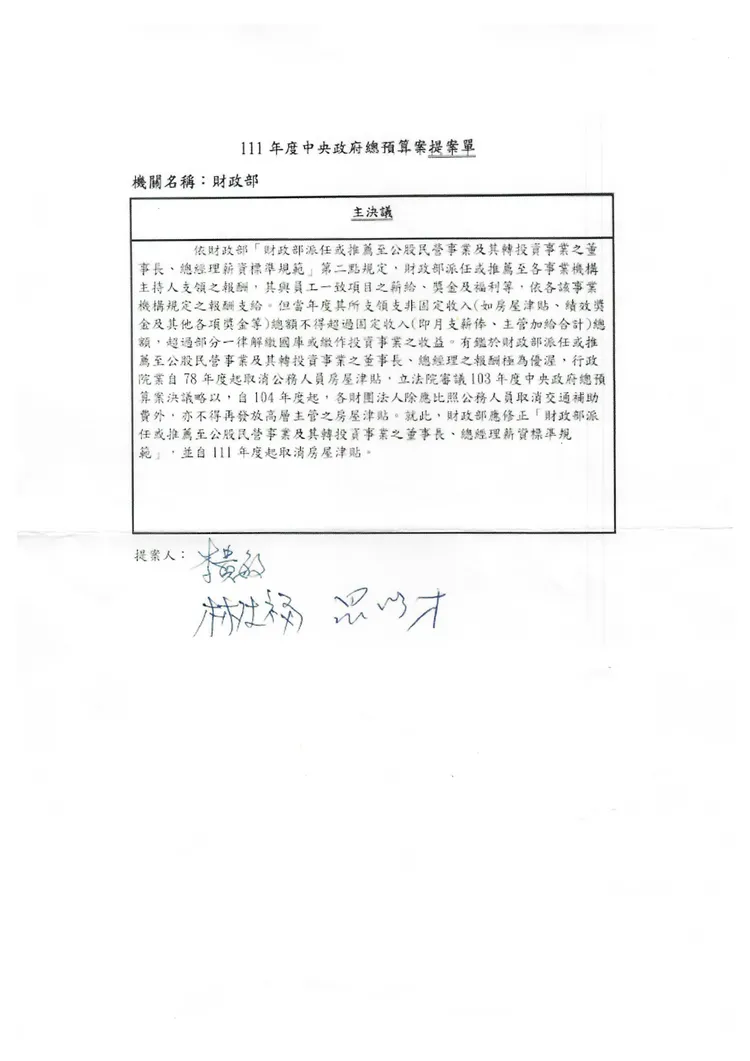 111 年度中央政府總預算案提案單
機關名稱：財政部
主決議
依財政部「財政部派任或推薦至公股民營事業及其轉投資事業之董
事長、總經理薪資標準規範」第二點規定，財政部派任或推薦至各事業機構
主持人支領之報酬，其與員工一致項目之薪給、獎金及福利等，依各該事業
機構規定之報酬支給。但當年度其所支領支非固定收入(如房屋津貼、績效獎
金及其他各項獎金等)總額不得超過固定收入(即月支薪俸、主管加給合計)總
額，超過部分一律解繳國庫或繳作投資事業之收益。有鑑於財政部派任或推
薦至公股民營事業及其轉投資事業之董事長、總經理之報酬極為優渥，行政
院業自 78 年度起取消公務人員房屋津貼，立法院審議 103 年度中央政府總預
算案決議略以，自 104 年度起，各財團法人除應比照公務人員取消交通補助
費外，亦不得再發放高層主管之房屋津貼。就此，財政部應修正「財政部派
任或推薦至公股民營事業及其轉投資事業之董事長、總經理薪資標準規
範」，並自 111 年度起取消房屋津貼。
提案人：李貴敏
林仕福